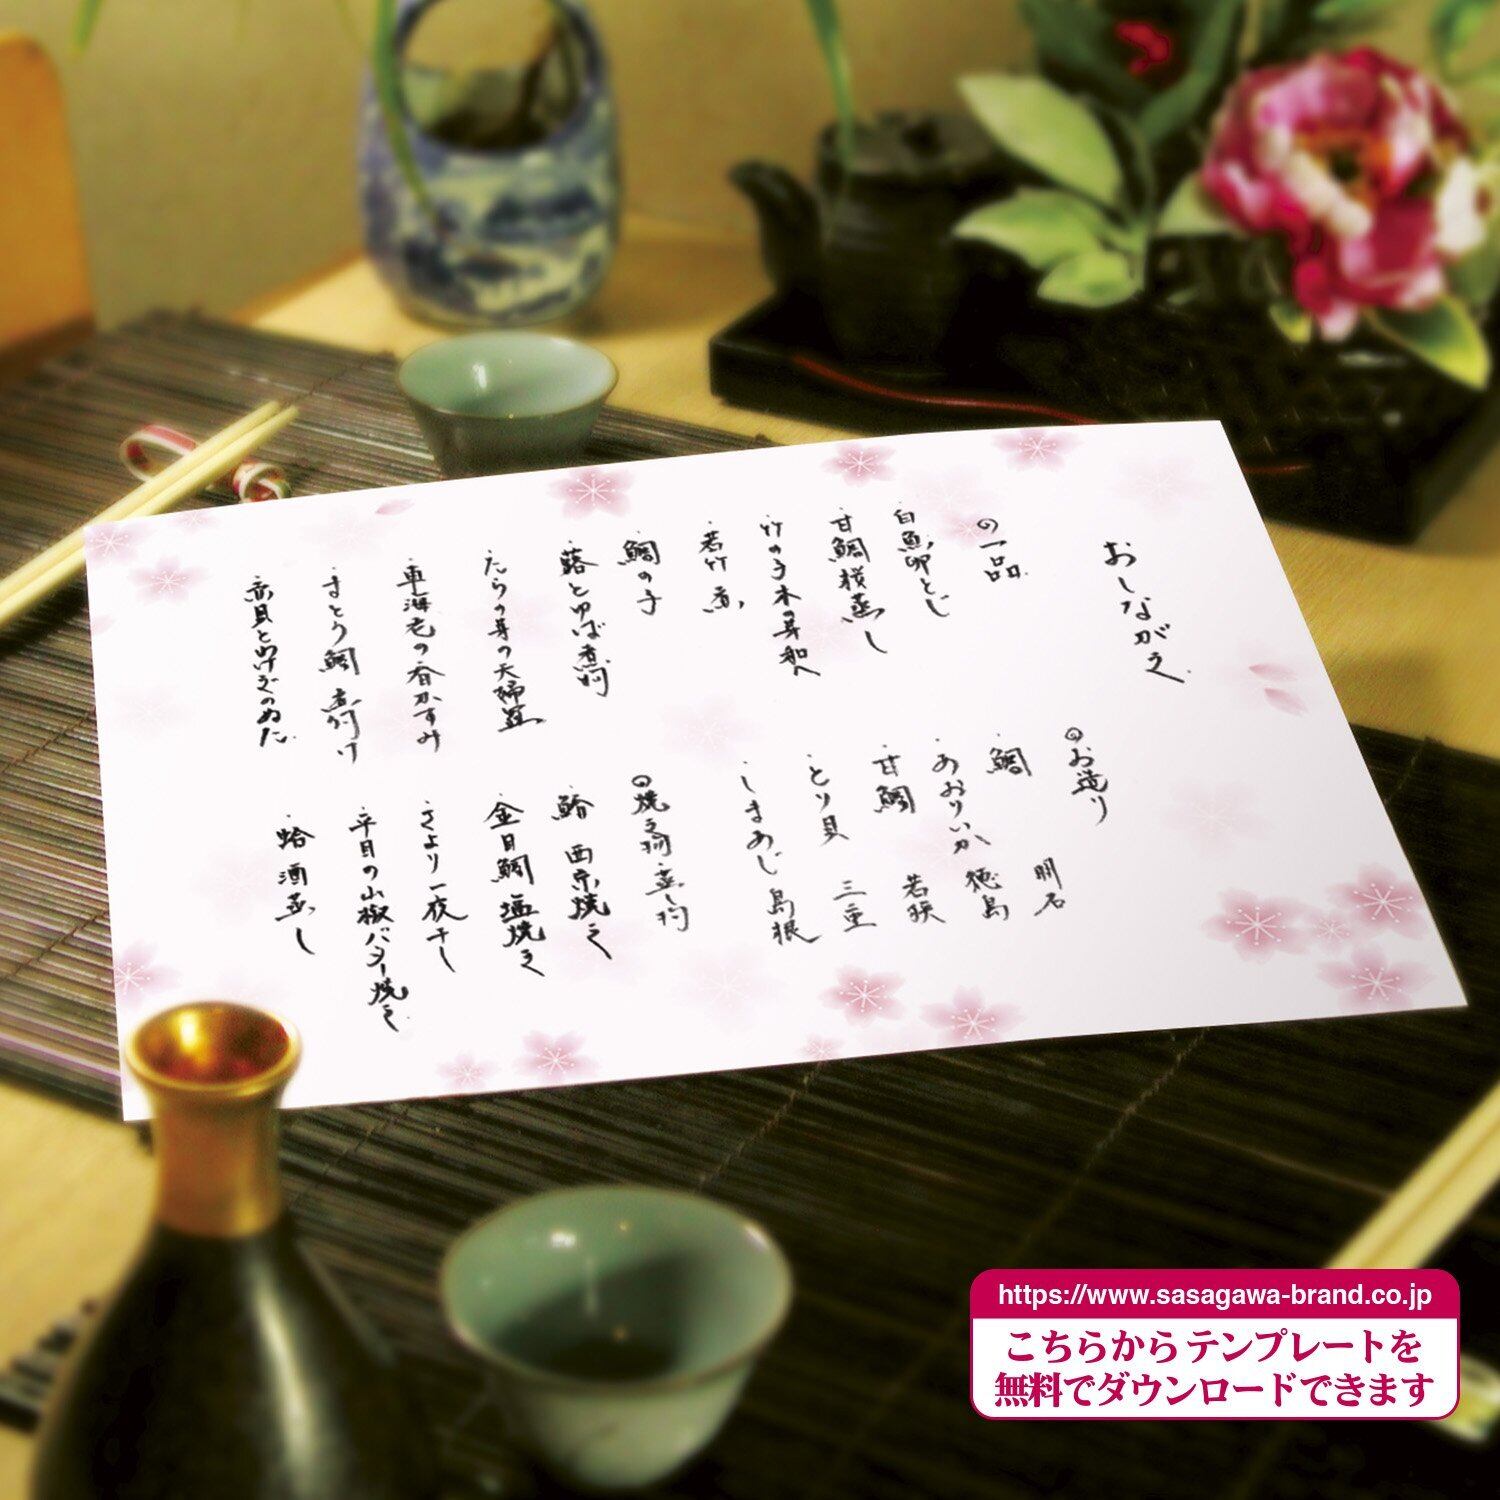 おしながき
の一品
・白魚卵とじ
・甘鯛桜蒸し
・竹の子木の芽和へ
・若竹煮
・鯛の子
・蕗とゆば煮物
・たらの芽の天婦羅
・車海老の春かすみ
・まとう鯛煮付け
・赤貝とわけぎのぬた
のお造り
・鯛 明石
・あおりいか 徳島
・甘鯛 若狭
・とり貝 三重
・しまあじ 島根
の焼き物・蒸し物
・西京焼き
・金目鯛塩焼き
・さより一夜干し
・平目の山椒バター焼き
・蛤酒蒸し
https://www.sasagawa-brand.co.jp
こちらからテンプレートを
無料でダウンロードできます